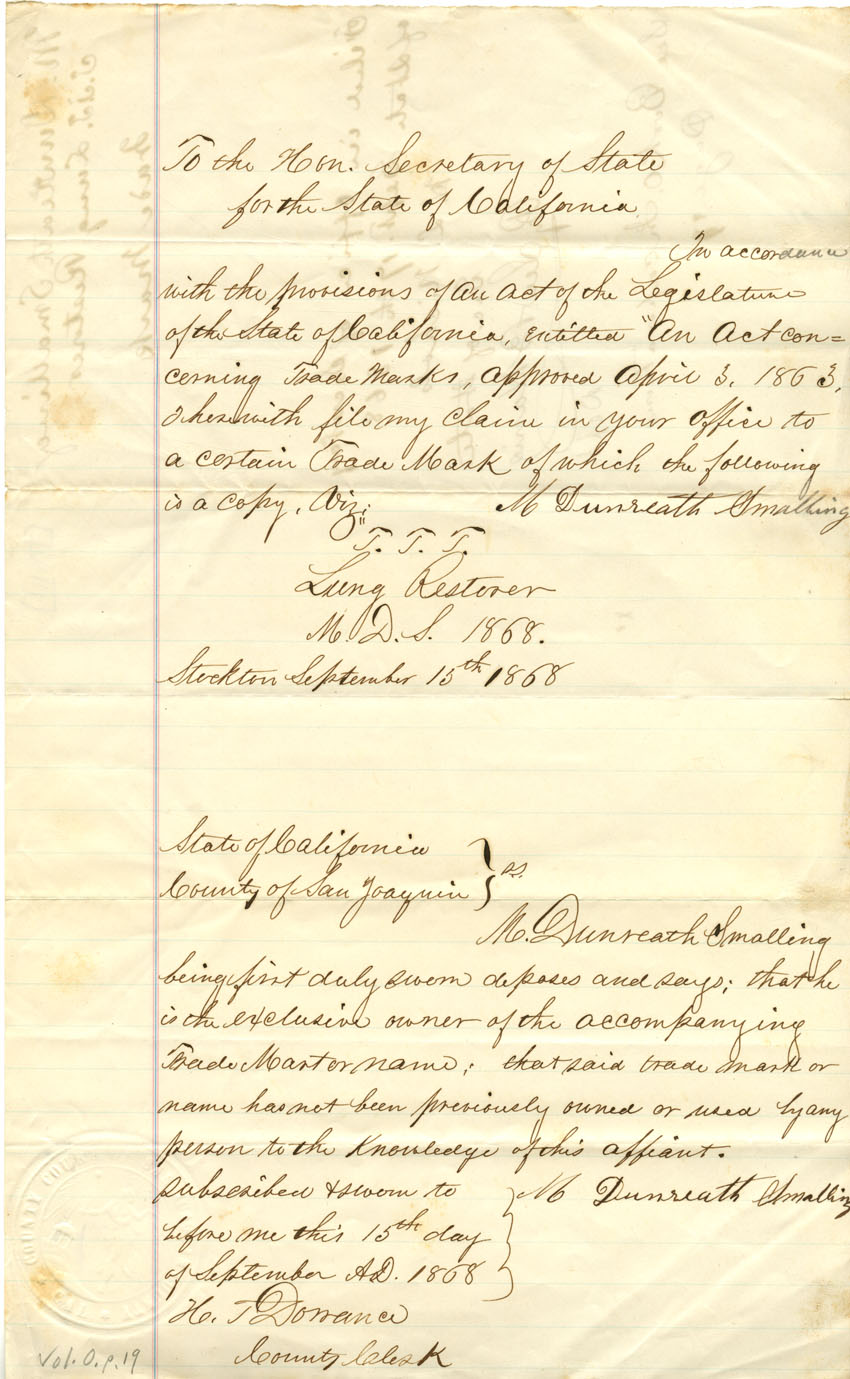 To the Hon. Secretary of State
for the State of California
In accordance
with the provisions of an act of the Legislature
of the State of California, entitled "An Act con=
cerning Trade Marks, approved April 3, 1863,
I herewith file my claim in your office to
a certain Trade Mark of which the following
is a copy, Viz; M Dunreath Smalling
"T. T. T.
Lung Restorer
M. D. S. 1868.
Stockton September 15th 1868
State of California
County of San Joaquin } ss
M. Dunreath Smalling
being first duly sworn deposes and says; that he
is the exclusive owner of the accompanying
Trade Mark or name; that said trade mark or
name has not been previously owned or used by any
person to the knowledge of this affiant.
subscribed & sworn to } M Dunreath Smalling
before me this 15th day
of September A.D. 1868
H. T. Dorrance
County Clerk
Vol. O. p. 19